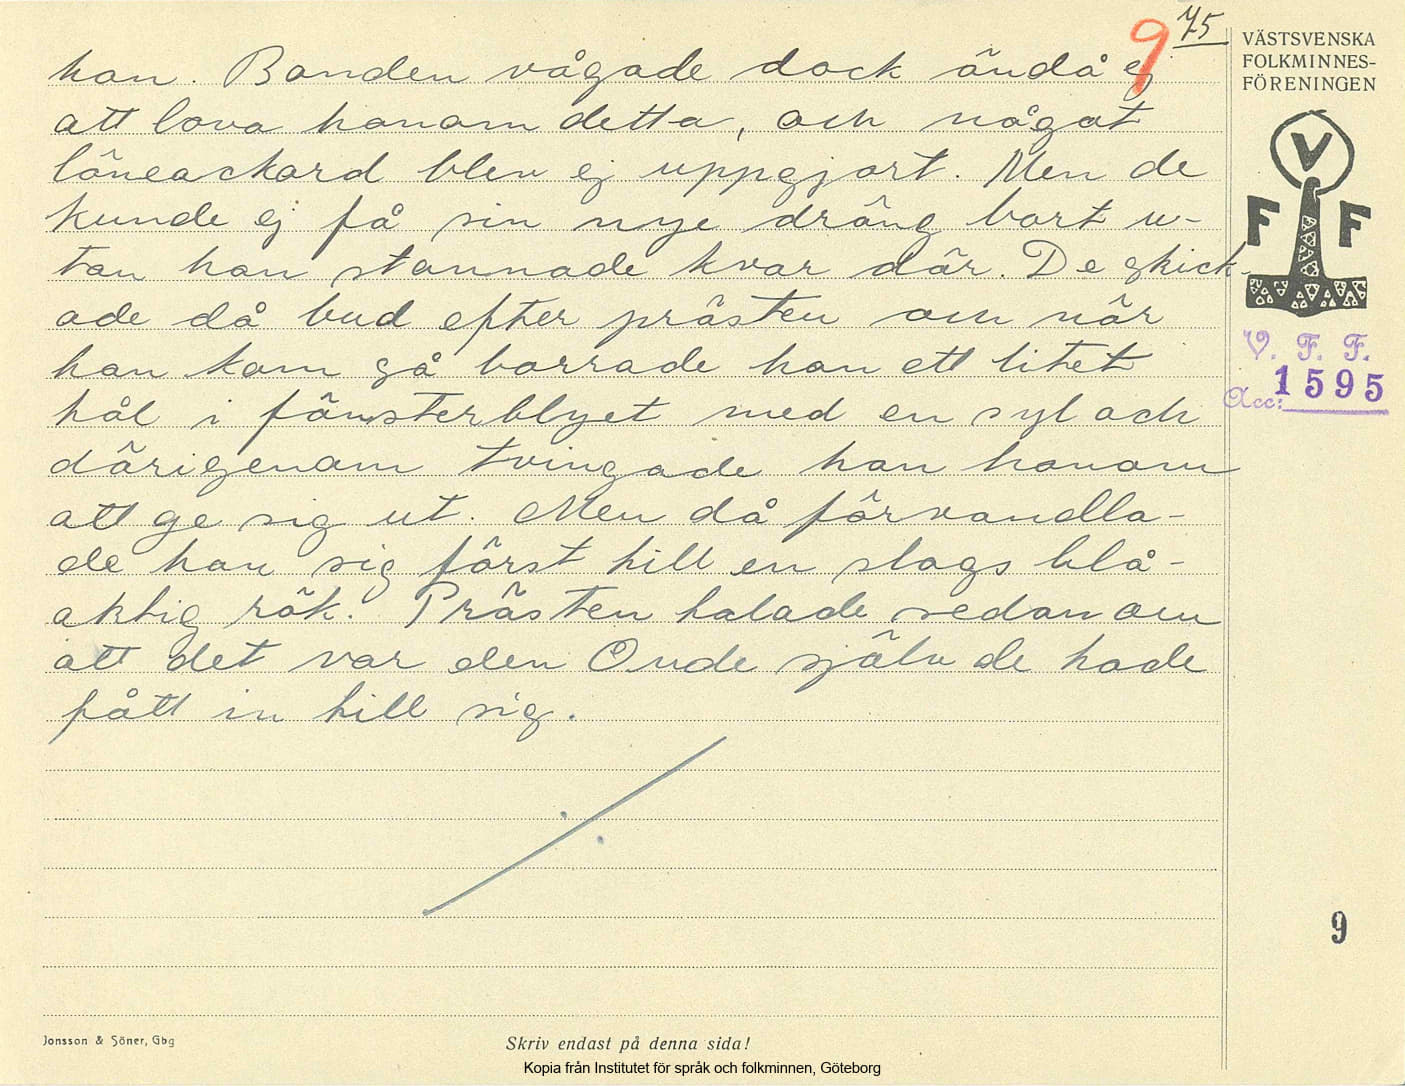 9 75
han. Bonden vågade dock ändå ej
att lova honom detta, och något
löneackord blev ej uppgjort. Men de
kunde ej få sin nye dräng bort u-
tan han stannade kvar där. De skick-
ade då bud efter prästen och när
han kom så borrade han ett litet
hål i fönsterblyet med en syl och
därigenom tvingade han honom
att ge sig ut. Men då förvandla-
de han sig först till en slags blå-
aktig rök. Prästen talade sedan om
att det var den Onde själv de hade
fått in till sig.
VÄSTSVENSKA
FOLKMINNES-
FÖRENINGEN
V
F F
V. F. F.
Acc: 1595
9
Jonsson & Söner, Gbg
Skriv endast på denna sida!
Kopia från Institutet för språk och folkminnen, Göteborg